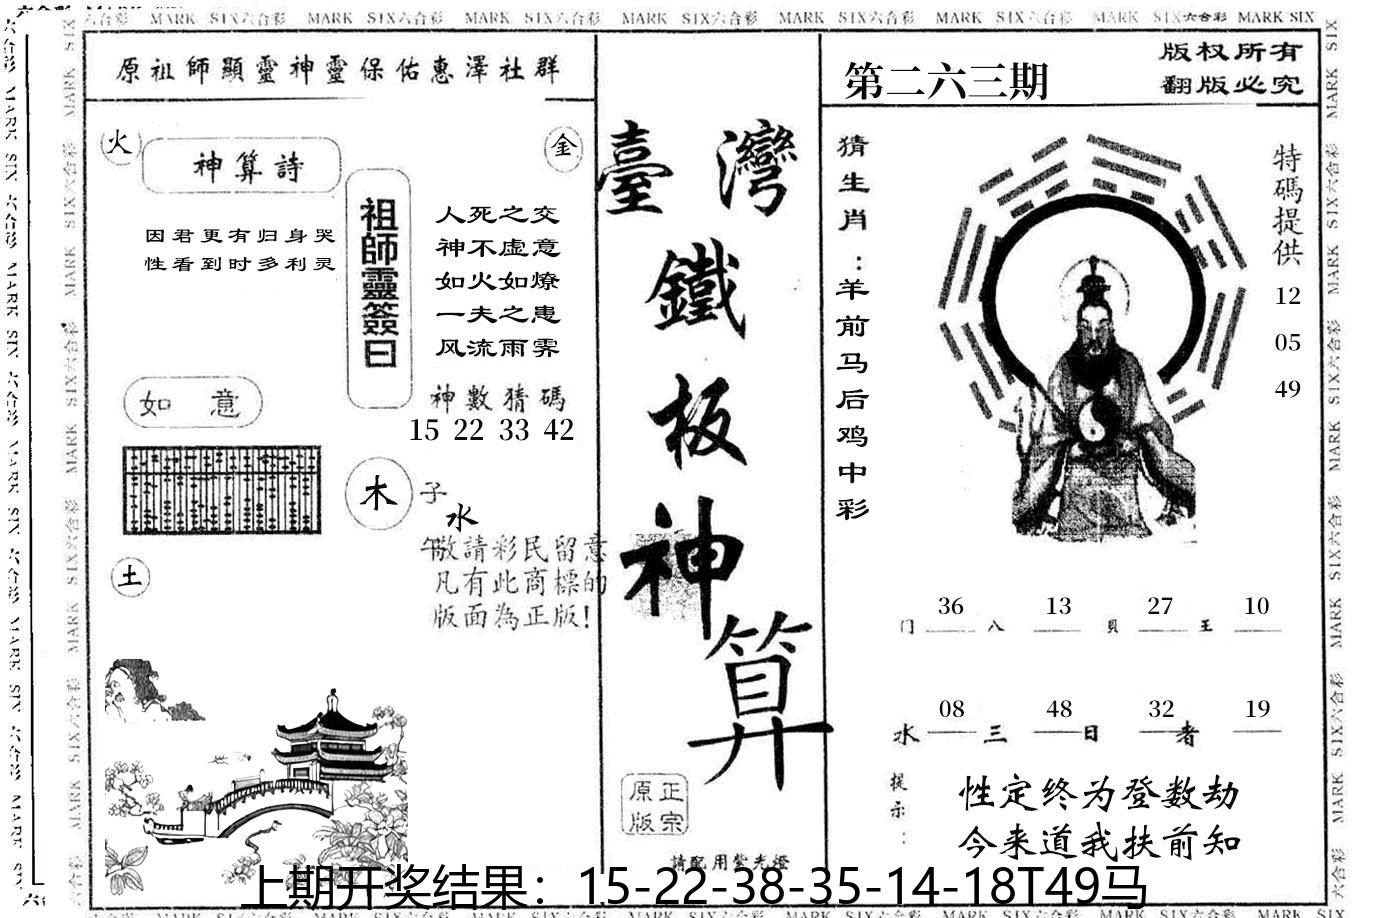 MARK SIX六合彩 MARK SIX六合彩 MARK SIX六合彩 MARK SIX六合彩 MARK SIX六合彩 MARK SIX六合彩 MARK SIX六合彩 MARK SIX
原祖師顯靈神靈保佑惠澤社群
火
神算詩
金
因君更有归身哭
性看到时多利灵
祖師靈簽曰
人死之交
神不虚意
如火如燎
一夫之患
风流雨霁
神數猜碼
15 22 33 42
如意
木
子
水
午
土
敬請彩民留意
凡有此商標的
版面為正版!
臺灣
鐵
板
神
算
正宗
原版
請配用紫光燈
第二六三期
版权所有
翻版必究
猜生肖：羊前马后鸡中彩
特碼提供
12
05
49
36 13 27 10
门 八 貝 王
08 48 32 19
水 三 日 者
提示：
性定终为登数劫
今来道我扶前知
上期开奖结果：15-22-38-35-14-18T49马